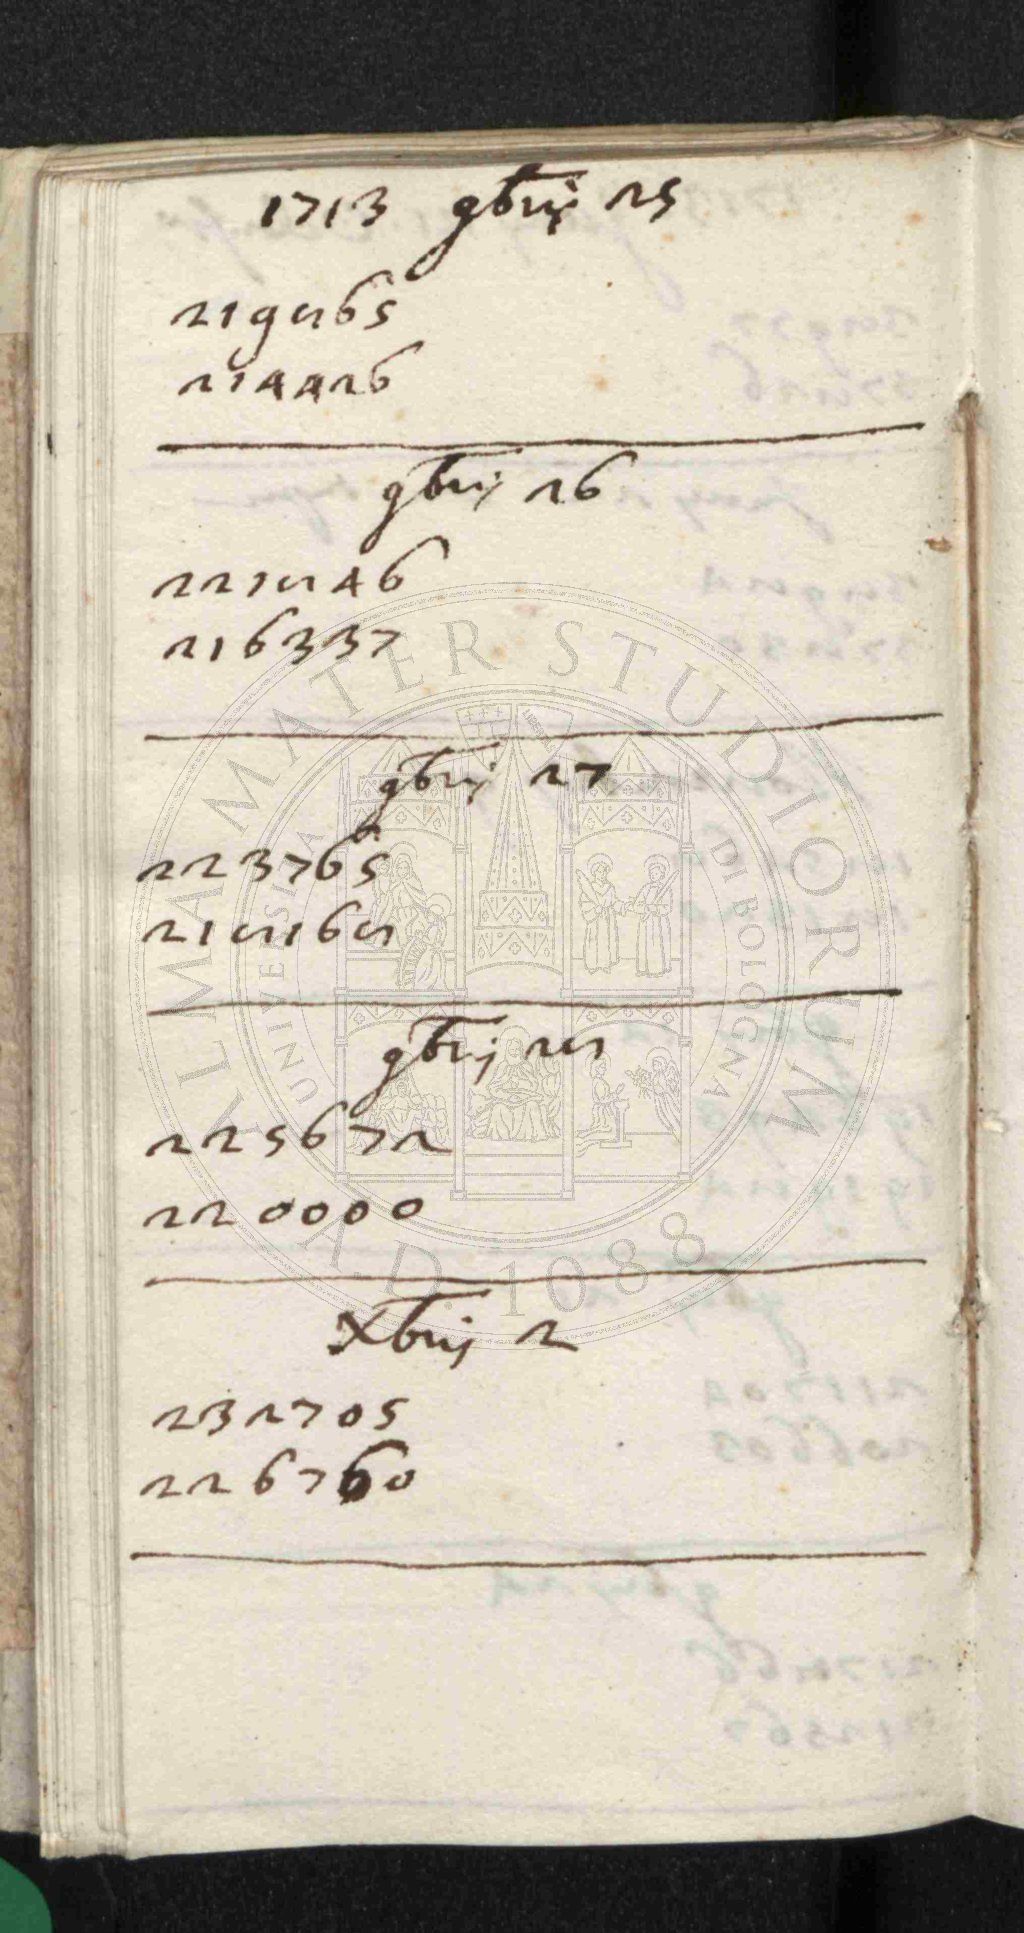 1713 9brij 25
219865
214426
9brij 26
221846
216337
9brij 27
223765
218168
9brij 28
225672
220000
Xbrij 2
232705
226760
ALMA MATER STUDIORUM
A.D. 1088
UNIVERSITÀ DI BOLOGNA